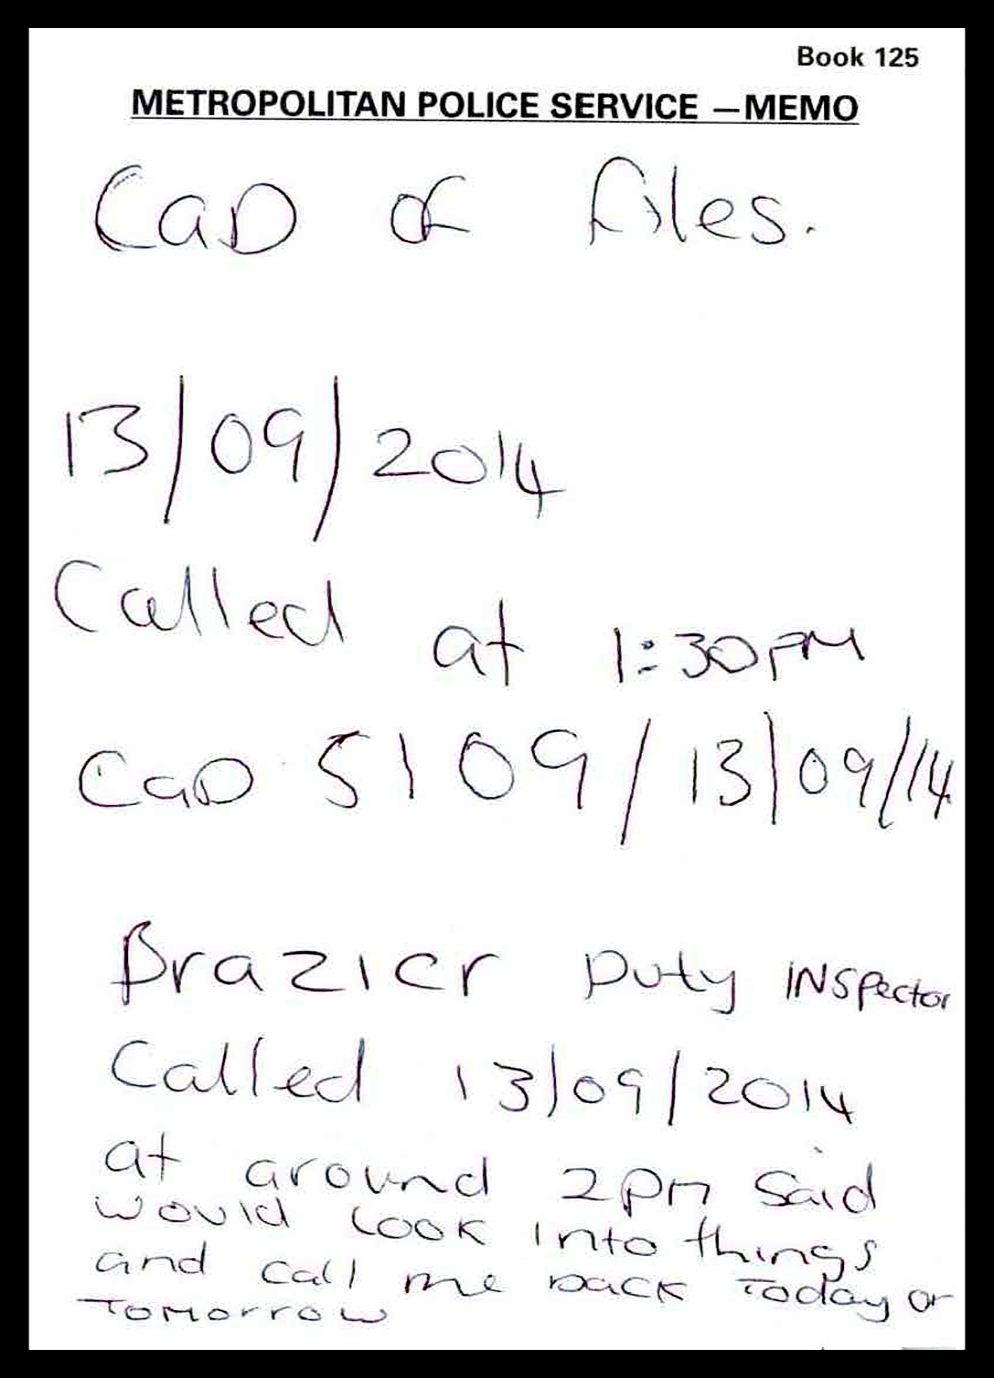 Book 125
METROPOLITAN POLICE SERVICE — MEMO
CaD of files.
13/09/2014
Called at 1:30PM
CaD 5109/13/09/14
Brazier Duty INSpector
Called 13/09/2014
at around 2pm Said
would Look into things
and call me back Today or
Tomorrow